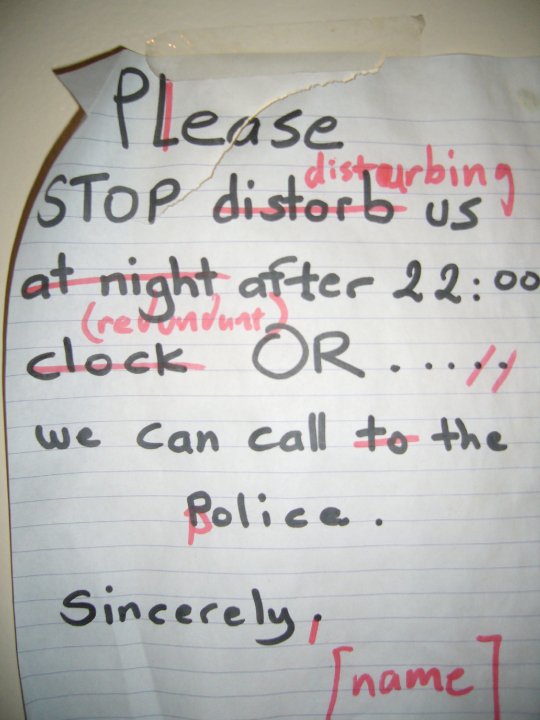 Please
disturbing
STOP distorb us
at night after 22:00
(redundant)
clock OR .....
we can call to the
Police.
Sincerely,
[name]